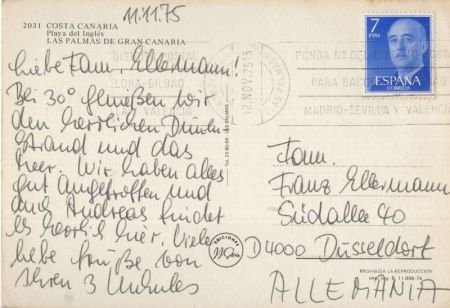 11.11.75
2031 COSTA CANARIA
Playa del Inglés
LAS PALMAS DE GRAN CANARIA
Liebe Fam. Ellermann!
Bei 30° genießen wir
den herrlichen Dünen-
strand und das
Meer. Wir haben alles
gut angetroffen und
auch Andreas findet
es herrlich hier. Viele
liebe Grüße von
Ihren 3
7
PTAS
ESPAÑA
CORREOS
12. NOV. 75
PONGA Nº DEL DISTRITO POSTAL
PARA BARCELONA
MADRID-SEVILLA Y VALENCIA
BILBAO
Fam.
Franz Ellermann
Südallee 40
D4000 Düsseldorf
ALLEMANIA
EDICIONES
PROHIBIDA LA REPRODUCCION